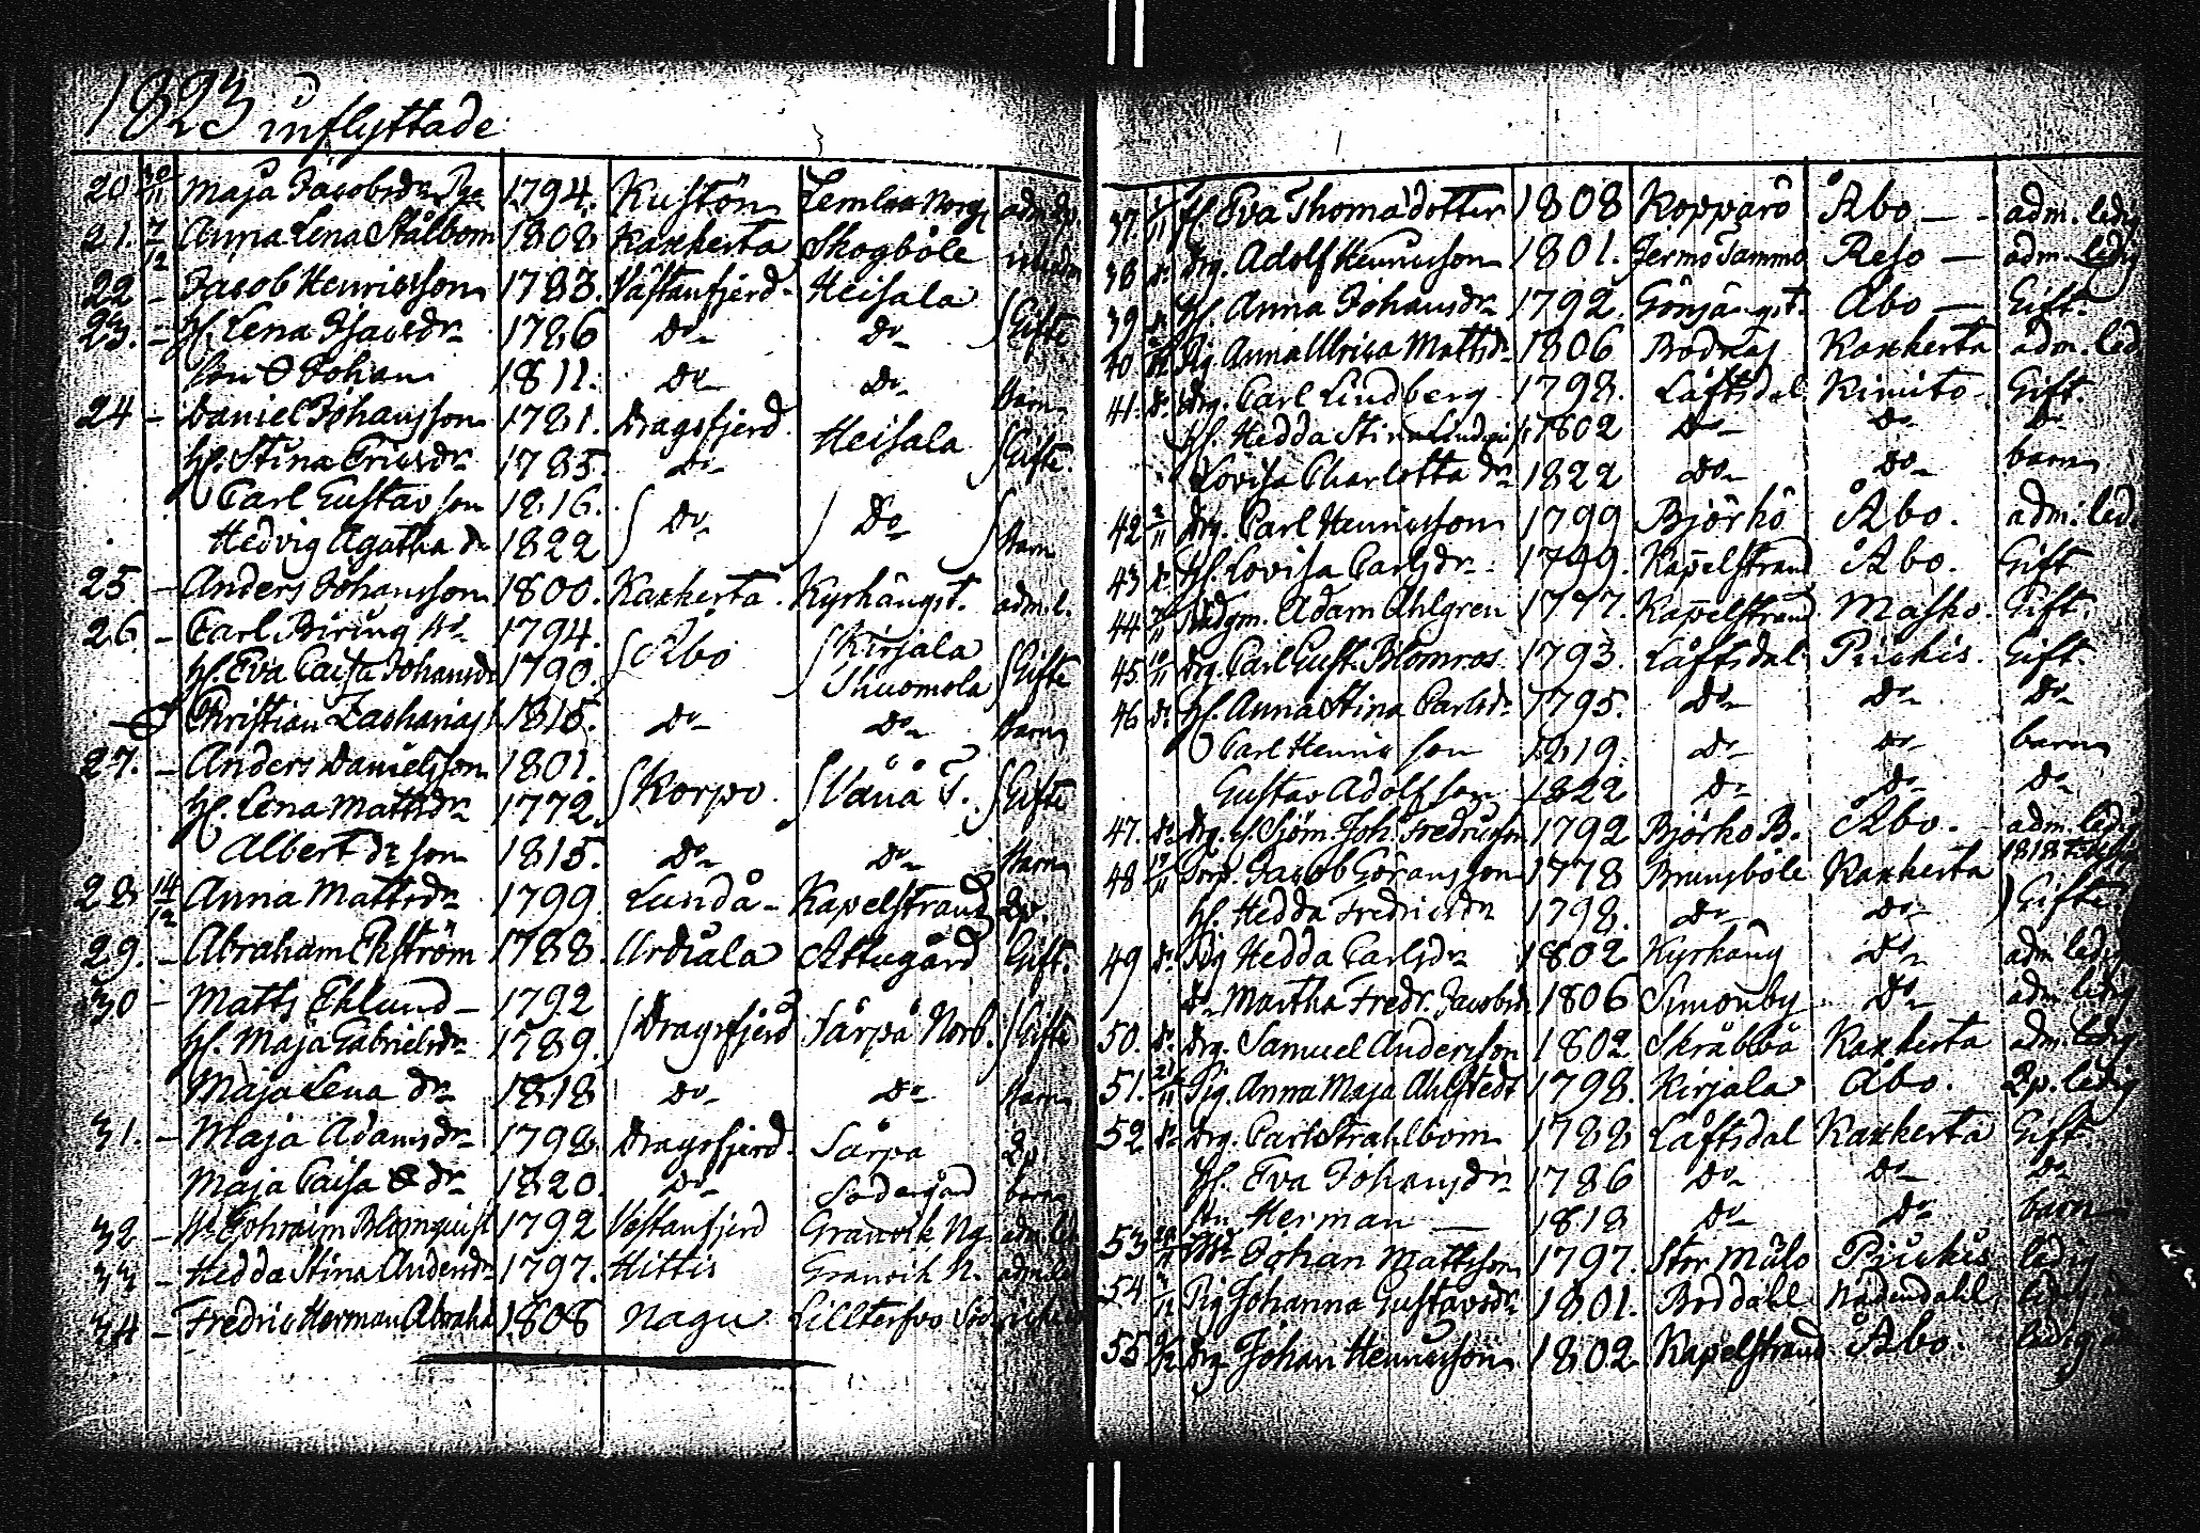 1823 inflyttade
20. 30/11 Maja Jacobsdr Pga 1794. Kustön Lemlax Norrg adm. 2p.
21. 7/12 Anna Lena Stålbom 1808 Kaxkerta Skogböle
22 - Jacob Henricsson 1783. Västanfjerd. Heisala
23. - H. Lena Isacsdr 1786 Do Do Gifte
Son Johan 1811. Do Do Barn
24 - Daniel Johansson 1781. Dragsfjerd. Heisala
H. Stina Ericsdr 1785. Do Gifte.
Carl Gustav son 1816. Do Do
Hedvig Agatha dr 1822 Barn
25. - Anders Johansson 1800. Kaxkerta. Kyrkängst. adm. l.
26. - Carl Biring 1794. Åbo Kirjala
H. Eva Caisa Johansdr 1790. Gifte
Christian Zacharias 1815. Do Do Barn
27. - Anders Danielsson 1801. Korpo. Vånå T. Gifte
H. Lena Mattsdr 1772.
Albert son 1815. Do Do Barn
28 14/12 Anna Mattsdr 1799. Lunda - Kapelstrand 2p.
29. - Abraham Ekström 1788. Ardiala Attugård Gift.
30 - Matts Eklund - 1792 Dragsfjerd Särpä Norb. Gifte
H. Maja Gabrielsdr 1789.
Maja Lena dr 1818 Do Do Barn
31. - Maja Adamsdr 1798. Dragsfjerd. Särpä 2p.
Maja Caisa dr 1820. Do Södergård barn
32 - Ephraim Blomquist 1792 Västanfjerd Granvik Ng. adm. led
33 - Hedda Stina Andersdr 1797. Hittis Granvik N. adm. led
34 - Fredric Herman Abraha 1808 Nagu Lilltervo
37. H. Eva Thomadotter 1808 Kopparö Åbo - adm. ledig
38 do. Drg. Adolf Henricsson 1801. Jermo Sammo Reso - adm. ledig
39 do. H. Anna Johansdr 1792. Åbo - Gift.
40 Pig. Anna Ulrica Mattsdr 1806 Bodnäs Kaxkerta adm. led.
41. do. Drg. Carl Lindberg. 1798. Låftsdal Kimito. Gift.
H. Hedda Stina 1802 Do Do Do
Lovisa Charlotta dr 1822 Do Do barn
42 2/11 Drg. Carl Henricsson 1799 Björkö Åbo. adm. led.
43 do. H. Lovisa Carlsdr. 1799. Kapelstrand Åbo. Gift
44 7/11 Adam Ahlgren 1777. Kapelstrand Masko. Gift.
45 10/11 Drg. Carl Gust. Blomros. 1793. Låftsdal Piickis. Gift.
46 do. H. Anna Stina Carlsdr 1795. Do Do Do
Carl Henric son 1819. Do Do barn
Gustav Adolf son 1822 Do Do Do
47. do. Drg. Sjöm Joh. Fredricsson 1792 Björkö B. Åbo. adm. ledig
48 17/11 Torp. Jacob Göransson 1778 Brunsböle Kaxkerta
H. Hedda Fredricsdr 1798. Do Do Gifte.
49 do. Pig Hedda Carlsdr 1802 Kyrkäng Do adm. ledig
Do Martha Fredr. Jacobsd. 1806 Simonby Do adm. ledig
50. do. Drg. Samuel Andersson 1802 Skräbbä Kaxkerta adm. ledig
51. 21/11 Pig. Anna Maja Ahlstedt 1798. Kirjala Åbo. 2p. ledig
52 do. Drg. Carl Strahlbom 1788 Låftsdal Kaxkerta Gift
H. Eva Johansdr 1786 Do Do Do
Son Herman - 1818 Do Do barn
53 Johan Mattsson 1797. Stor Målo Piickis ledig
54 Pig Johanna Gustavsdr 1801. Boddahl Nådendahl ledig
55 Drg Johan Henricsson 1802 Kapelstrand Åbo. ledig